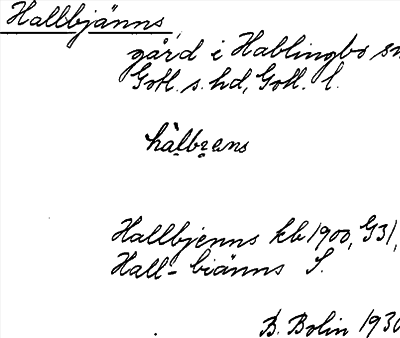 Hallbjänns,
gård i Hablingbo sn
Gotl. s. hd, Gotl. l.
Hallbjenns kb 1900, G31,
Hall-biänns S.
B. Bolin 1930